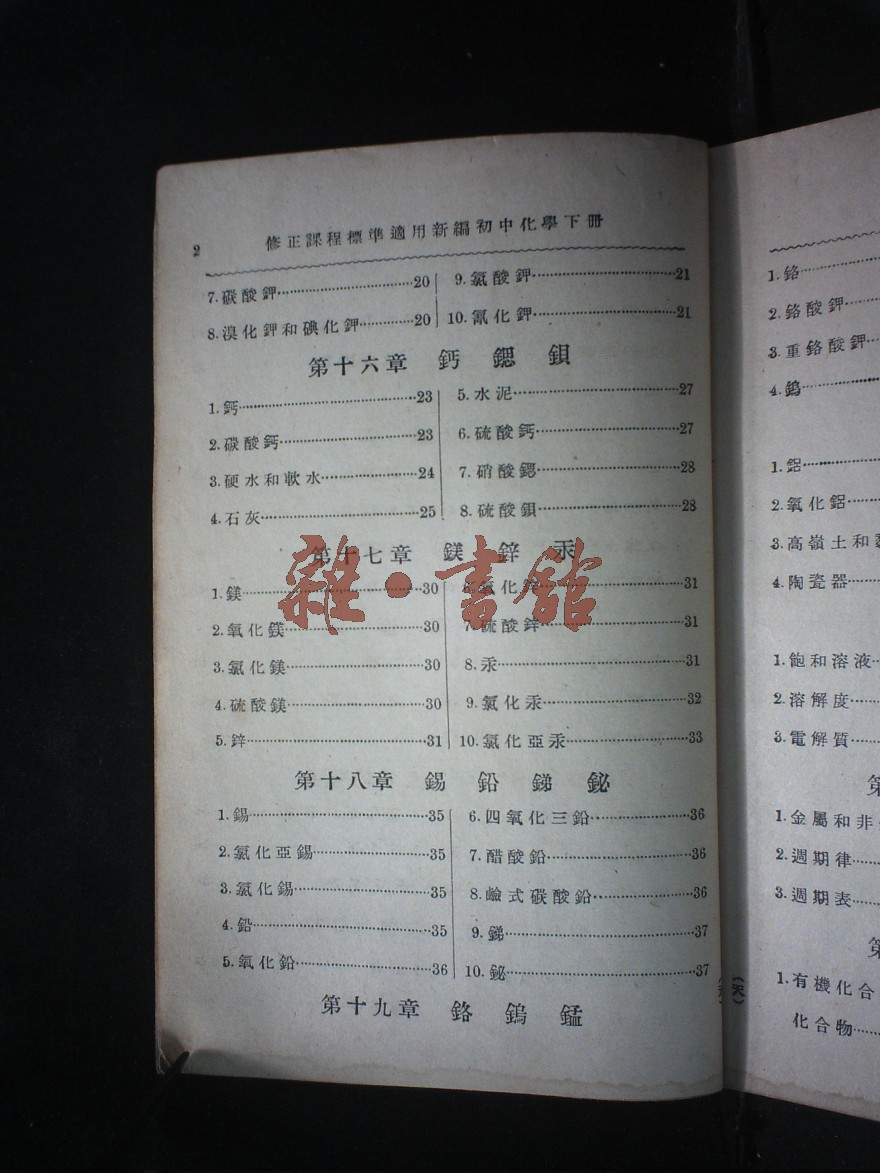 2 修正課程標準適用新編初中化學下冊
7. 碳酸鉀……20
8. 溴化鉀和碘化鉀……20
9. 氯酸鉀……21
10. 氰化鉀……21
第十六章 鈣 鍶 鋇
1. 鈣……23
2. 碳酸鈣……23
3. 硬水和軟水……24
4. 石灰……25
5. 水泥……27
6. 硫酸鈣……27
7. 硝酸鍶……28
8. 硫酸鋇……28
第十七章 鎂 鋅 汞
1. 鎂……30
2. 氧化鎂……30
3. 氯化鎂……30
4. 硫酸鎂……30
5. 鋅……31
化鋅……31
7. 硫酸鋅……31
8. 汞……31
9. 氯化汞……32
10. 氯化亞汞……33
第十八章 錫 鉛 銻 鉍
1. 錫……35
2. 氯化亞錫……35
3. 氯化錫……35
4. 鉛……35
5. 氧化鉛……36
6. 四氧化三鉛……36
7. 醋酸鉛……36
8. 鹼式碳酸鉛……36
9. 銻……37
10. 鉍……37
第十九章 鉻 鎢 錳
雜·書館
1. 鉻……
2. 鉻酸鉀……
3. 重鉻酸鉀……
4. 鎢……
1. 鋁……
2. 氧化鋁……
3. 高嶺土和
4. 陶瓷器……
1. 飽和溶液
2. 溶解度……
3. 電解質……
第
1. 金屬和非
2. 週期律……
3. 週期表……
第
1. 有機化合
化合物……